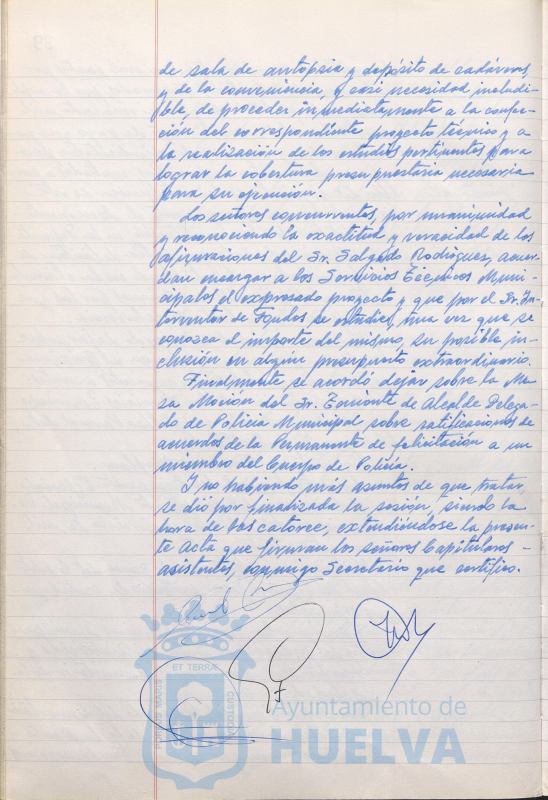 de sala de autópsia y depósito de cadáveres,
y de la conveniencia, y casi necesidad ineludi-
ble, de proceder inmediatamente a la confec-
ción del correspondiente proyecto técnico y a
la realización de los estudios pertinentes para
lograr la cobertura presupuestaria necesaria
para su ejecución.
Los señores concurrentes, por unanimidad
y reconociendo la exactitud y veracidad de las
afirmaciones del Sr. Salgado Rodríguez, acuer-
dan encargar a los Servicios Técnicos Muni-
cipales el expresado proyecto y que por el Sr. In-
terventor de Fondos se estudie, una vez que se
conozca el importe del mismo, su posible in-
clusión en algún presupuesto extraordinario.
Finalmente se acordó dejar sobre la Me-
sa Moción del Sr. Teniente de Alcalde Delega-
do de Policía Municipal sobre ratificaciones de
acuerdos de la Permanente de felicitación a un
miembro del Cuerpo de Policía.
Y no habiendo más asuntos de que tratar,
se dió por finalizada la sesión, siendo la
hora de las catorce, extendiéndose la presen-
te Acta que firman los señores Capitulares
asistentes, conmigo Secretario que certifico.
ET TERRAE
PORTUS MARIS
CUSTODIA
Ayuntamiento de
HUELVA